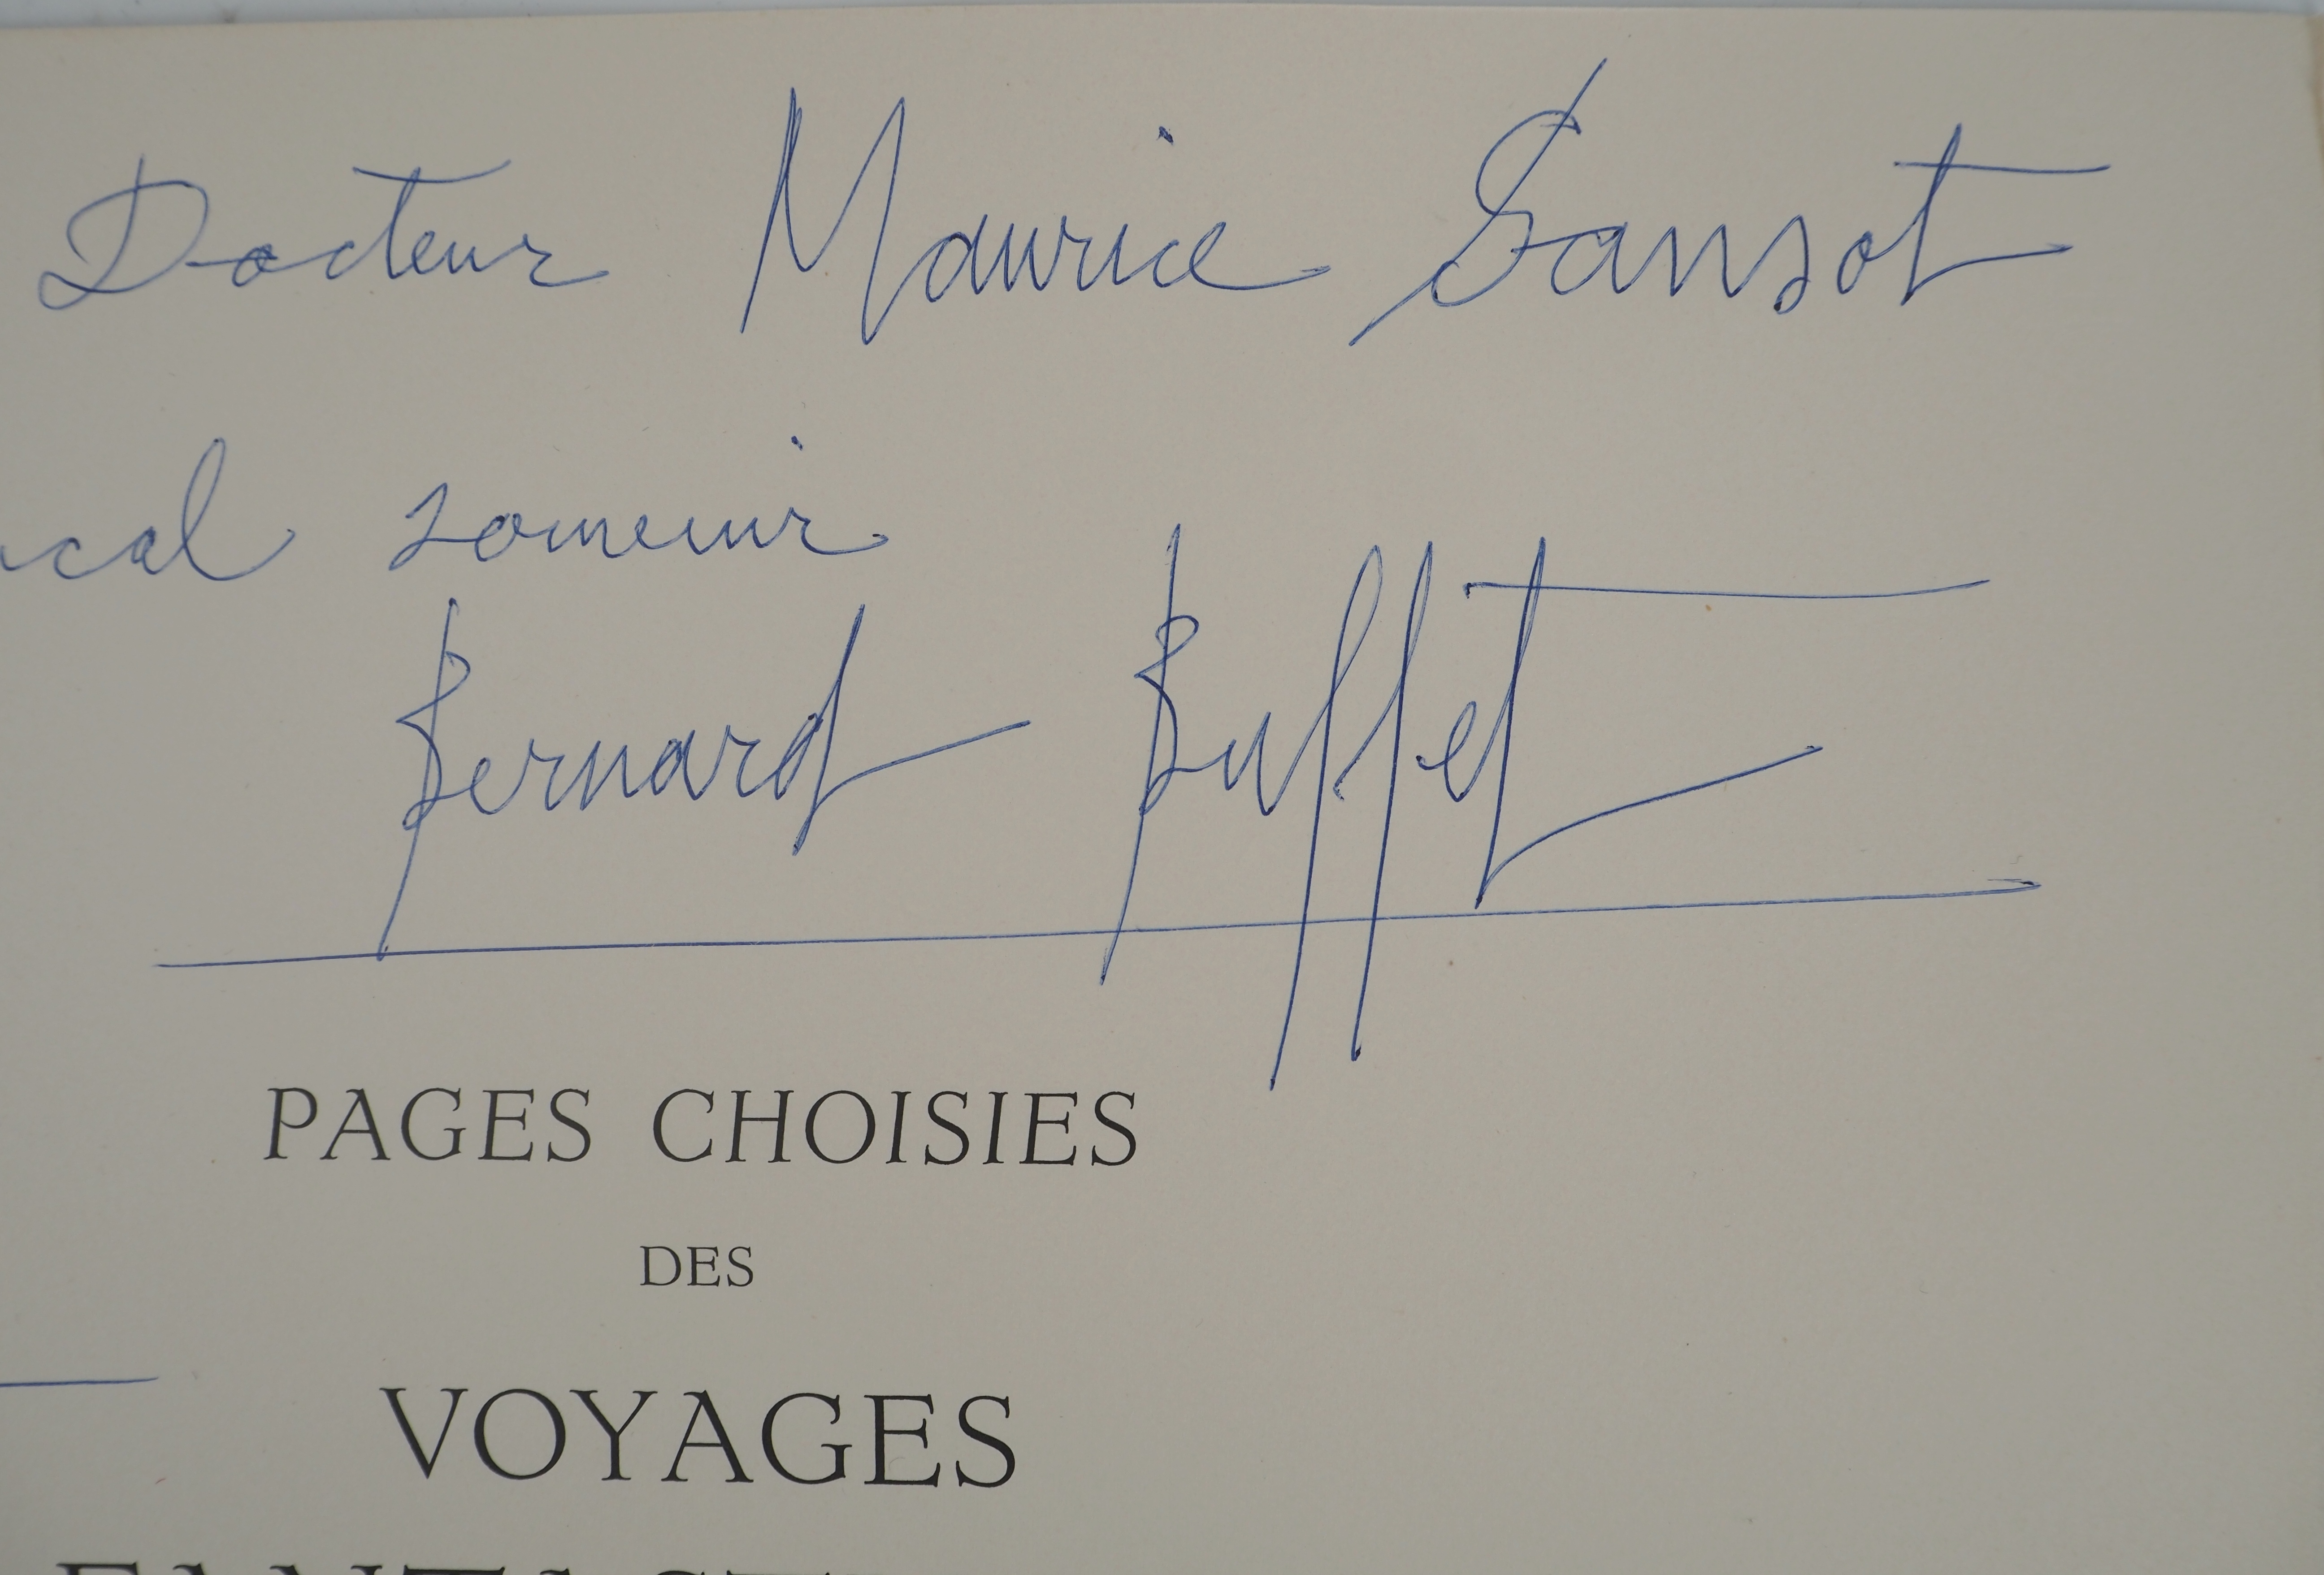 Docteur Maurice Sansot
ical souvenir
Bernard Buffet
PAGES CHOISIES
DES
VOYAGES